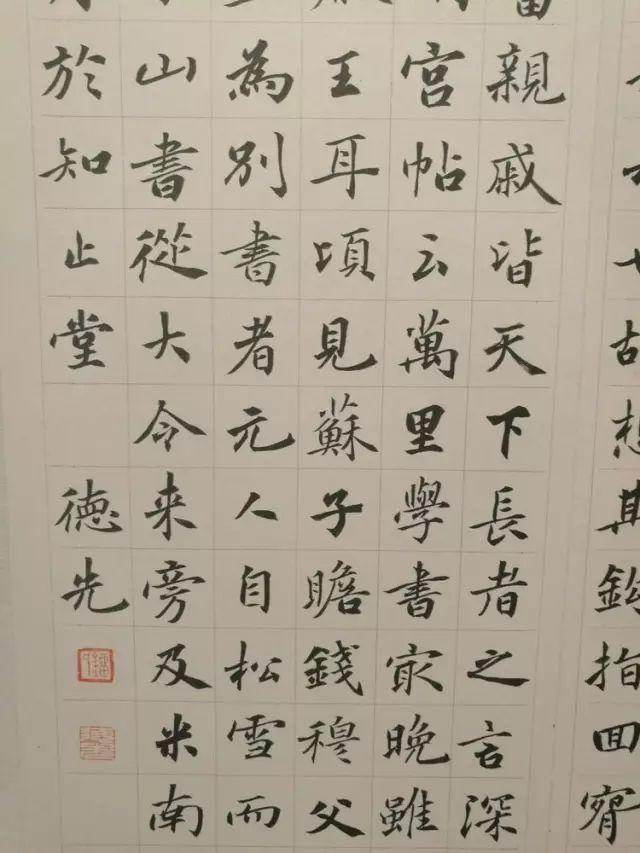 七古想其鈎指回
親戚皆天下長者之言深
宮帖云萬里學書㝡晚雖
王耳頃見蘇子瞻錢穆父
為別書者元人自松雪而
山書從大令来旁及米南
於知止堂 德先